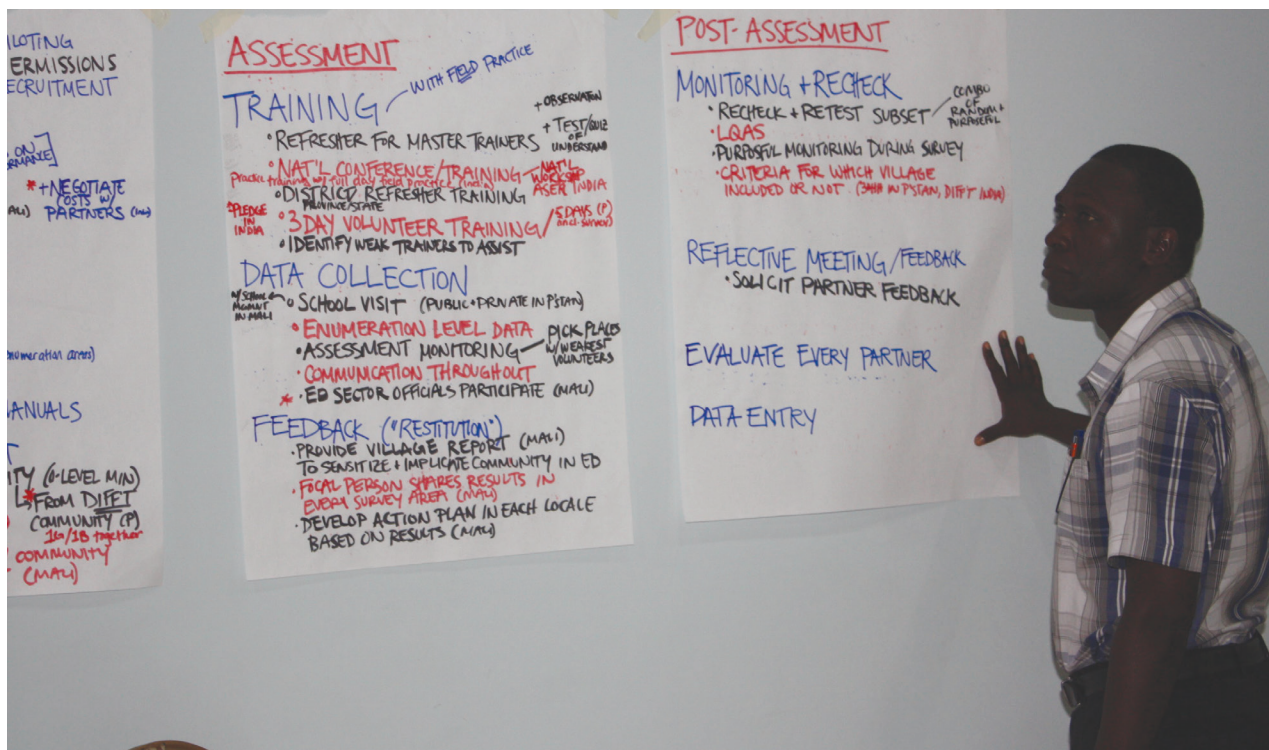 ILOTING
ERMISSIONS
ECRUITMENT
ON
RMANCE]
* + NEGOTIATE
COSTS W/
ALI) PARTNERS
numeration areas)
ANUALS
T
ITY (O-LEVEL MIN)
* FROM DIFFT
COMMUNITY (P)
1G/1B together
COMMUNITY
(MALI)
ASSESSMENT
TRAINING WITH FIELD PRACTICE
+ OBSERVATION
• REFRESHER FOR MASTER TRAINERS + TEST/QUIZ
OF
UNDERSTAND
• NAT'L CONFERENCE/TRAINING NAT'L
Practice training w/ full day field practice (India) WORKSHP
• DISTRICT REFRESHER TRAINING ASER INDIA
PROVINCE/STATE
*PLEDGE
IN
INDIA
• 3 DAY VOLUNTEER TRAINING / 5 DAYS (P)
incl. survey)
• IDENTIFY WEAK TRAINERS TO ASSIST
DATA COLLECTION
W/ SCHOOL
MGMNT
IN MALI
• SCHOOL VISIT (PUBLIC + PRIVATE IN P'STAN)
• ENUMERATION LEVEL DATA
• ASSESSMENT MONITORING PICK PLACES
W/ WEAKEST
VOLUNTEERS
• COMMUNICATION THROUGHOUT
* • ED SECTOR OFFICIALS PARTICIPATE (MALI)
FEEDBACK ("RESTITUTION")
• PROVIDE VILLAGE REPORT (MALI)
TO SENSITIZE + IMPLICATE COMMUNITY IN ED
• FOCAL PERSON SHARES RESULTS IN
EVERY SURVEY AREA (MALI)
• DEVELOP ACTION PLAN IN EACH LOCALE
BASED ON RESULTS (MALI)
POST-ASSESSMENT
MONITORING + RECHECK
• RECHECK + RETEST SUBSET COMBO
OF
RANDOM +
PURPOSEFUL
• LQAS
• PURPOSFUL MONITORING DURING SURVEY
• CRITERIA FOR WHICH VILLAGE
INCLUDED OR NOT (3HH IN PSTAN, DIFFT INDIA)
REFLECTIVE MEETING/FEEDBACK
• SOLICIT PARTNER FEEDBACK
EVALUATE EVERY PARTNER
DATA ENTRY